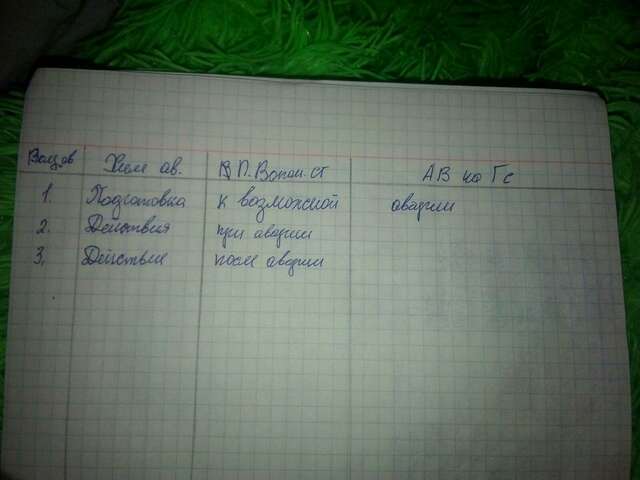 Хим ав. П. В АВ на Гс
1. Подготовка к возможной аварии
2. Действия при аварии
3. Действие после аварии